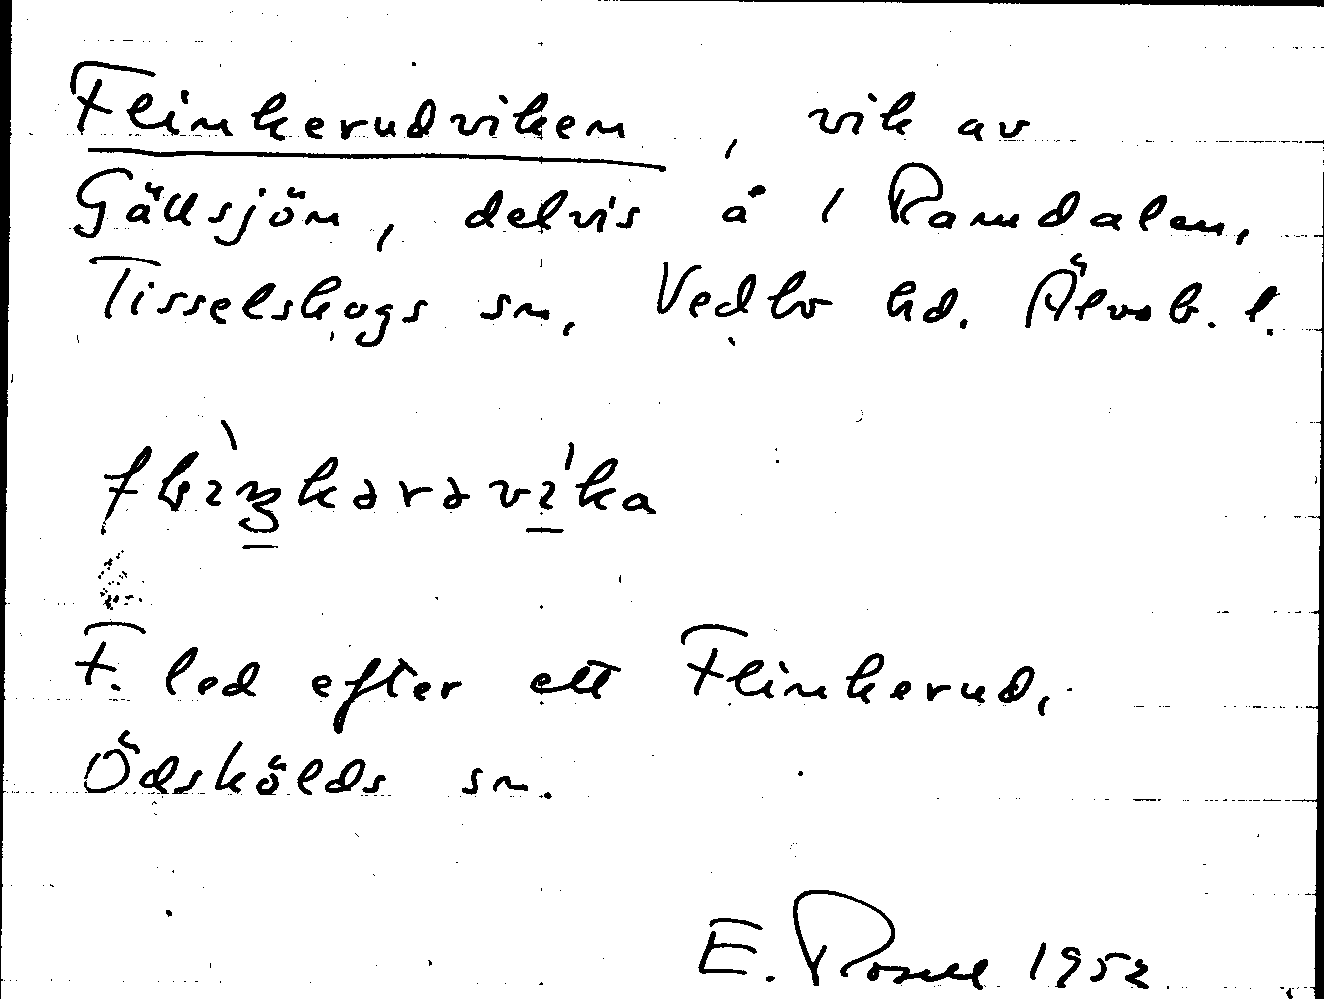 Flinkerudviken, vik av
Gällsjön, delvis å 1 Ramdalen,
Tisselskogs sn, Vedbo hd. Älvsb. l.
F. led efter ett Flinkerud,
Ödskölds sn.
E. Rosell 1952